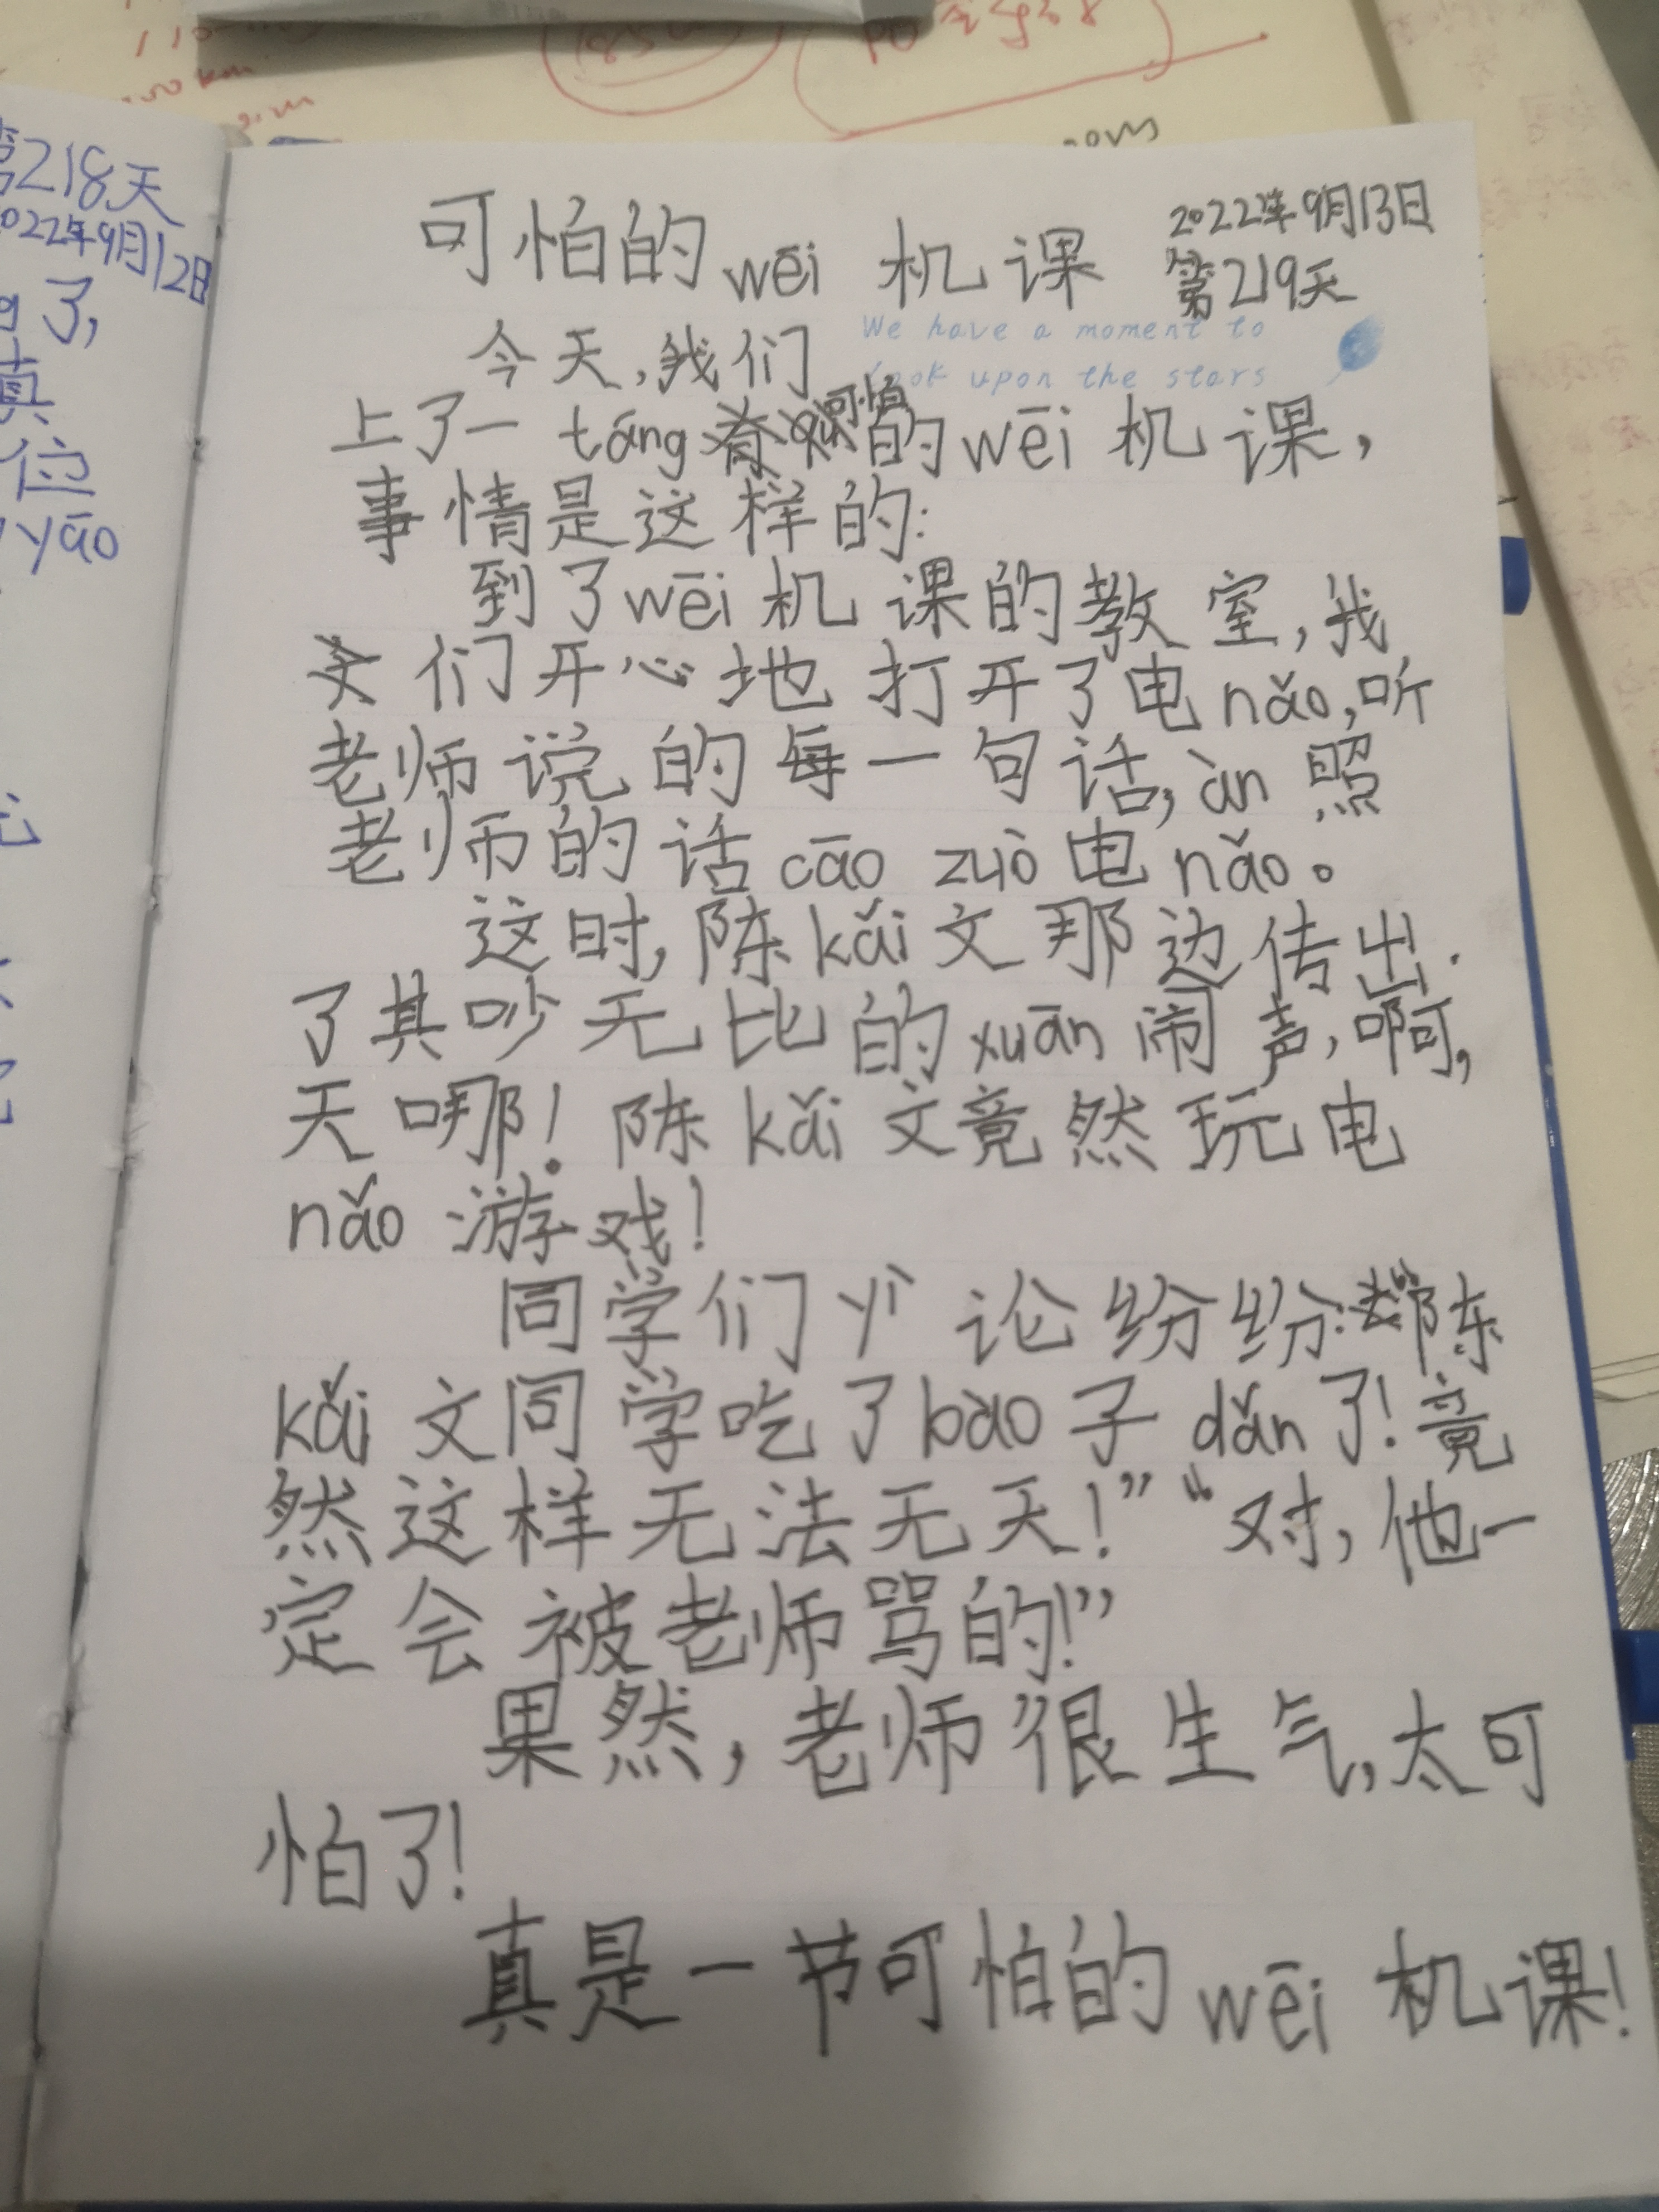 第218天
2022年9月12日
了,
真
位
yāo
可怕的wēi机课
2022年9月13日
第219天
We have a moment to
look upon the stars
今天,我们
可怕
上了一táng的wēi机课,
事情是这样的:
到了wēi机课的教室,我
们开心地打开了电nǎo,听
老师说的每一句话,àn照
老师的话cāo zuò电nǎo。
这时,陈kǎi文那边传出
了其吵无比的xuān闹声,啊,
天哪!陈kǎi文竟然玩电
nǎo游戏!
同学们yì论纷纷:“陈
kǎi文同学吃了bào子dǎn了!竟
然这样无法无天!”“对,他一
定会被老师骂的!”
果然,老师很生气,太可
怕了!
真是一节可怕的wēi机课!